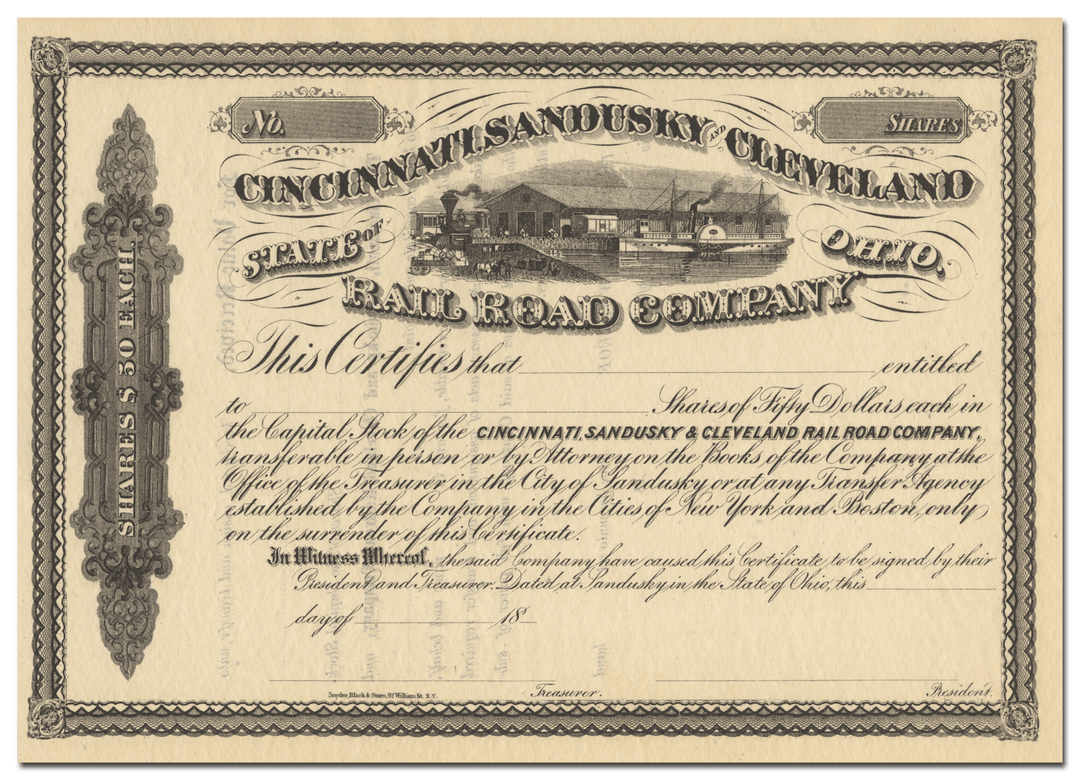 No.
SHARES
CINCINNATI, SANDUSKY AND CLEVELAND
STATE OF OHIO.
RAIL ROAD COMPANY
SHARES $ 50 EACH.
This Certifies that entitled
to Shares of Fifty Dollars each in
the Capital Stock of the CINCINNATI, SANDUSKY & CLEVELAND RAIL ROAD COMPANY,
transferable in person or by Attorney on the Books of the Company at the
Office of the Treasurer in the City of Sandusky or at any Transfer Agency
established by the Company in the Cities of New York and Boston, only
on the surrender of this Certificate.
In Witness Whereof, the said Company have caused this Certificate to be signed by their
President and Treasurer. Dated at Sandusky in the State of Ohio, this
day of 18
Snyder, Black & Sturn, 92 William St. N.Y.
Treasurer.
President.